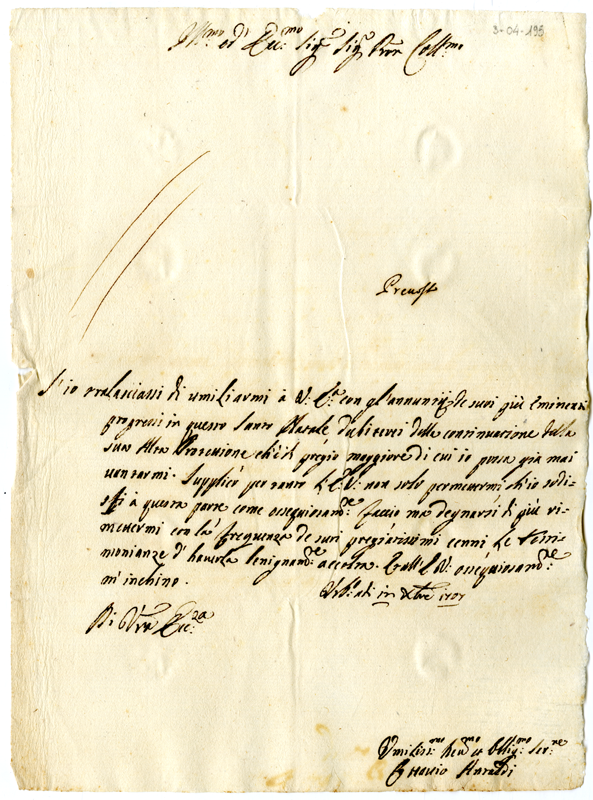 3-04-195
Ill.mo ed Ecc.mo Sig.r Sig.r Pron Coll.mo
Prevosto
S'io tralasciassi di umiliarmi à V. E. con gl'annunzij de suoi più eminenti
progressi in questo Santo Natale dubiterei della continuazione della
sua Alta Protezione ch'è il pregio maggiore di cui io possa già mai
vantarmi. Supplico per tanto l'E. V. non solo permettermi ch'io sodi-
sfi à questa parte come ossequiosam.te faccio ma degnarsi di più ri-
mettermi con la frequenza de suoi pregiatissimi cenni le testi-
monianze d'haverla benignam.te accetta. E all'E. V. ossequiosam.te
m'inchino.
in Xbre 1707
Di V.ra Ecc.za
Umiliss.mo Dev.mo et Obblig.mo Ser.re